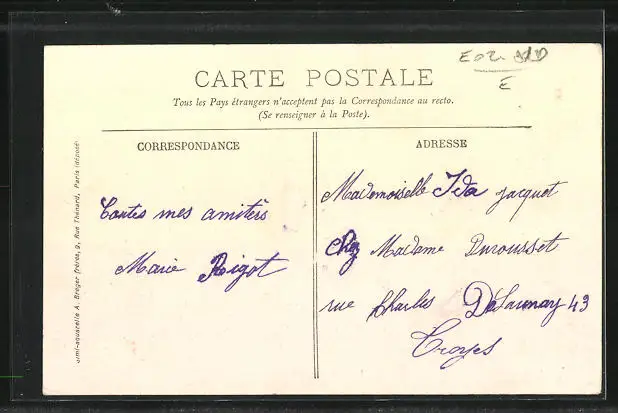 CARTE POSTALE
Tous les Pays étrangers n'acceptent pas la Correspondance au recto.
(Se renseigner à la Poste).
CORRESPONDANCE
Toutes mes amitiés
Marie Rigot
ADRESSE
Mademoiselle Ida Jacquet
chez Madame Durousset
rue Charles Delaunay 43
Troyes
Simi-aquarelle A. Breger frères, 9, Rue Thénard, Paris (déposé)
E